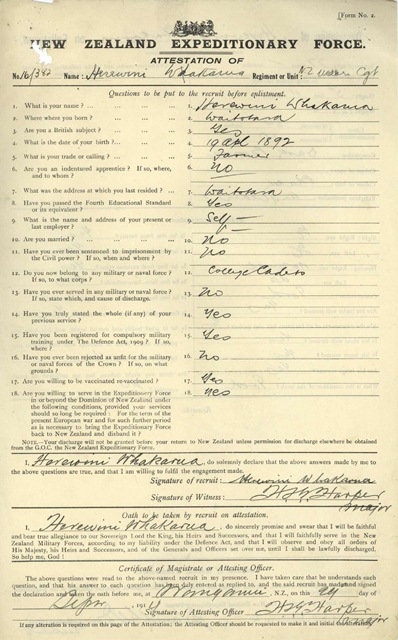 [Form No. 2.
NEW ZEALAND EXPEDITIONARY FORCE.
ATTESTATION OF
No. 16/382 Name: Herewini Whakarua Regiment or Unit: NZ Maori Cgt
Questions to be put to the recruit before enlistment.
1. What is your name? ... 1. Herewini Whakarua
2. Where were you born? 2. Waitotara
3. Are you a British subject? 3. Yes
4. What is the date of your birth? 4. 19 Apl 1892
5. What is your trade or calling? 5. Farmer
6. Are you an indentured apprentice? If so, where, 6. No
and to whom?
7. What was the address at which you last resided? 7. Waitotara
8. Have you passed the Fourth Educational Standard 8. Yes
or its equivalent?
9. What is the name and address of your present or 9. Self —
last employer?
10. Are you married? 10. No
11. Have you ever been sentenced to imprisonment by 11. No
the Civil power? If so, when and where?
12. Do you now belong to any military or naval force? 12. College Cadets
If so, to what corps?
13. Have you ever served in any military or naval force? 13. No
If so, state which, and cause of discharge.
14. Have you truly stated the whole (if any) of your 14. Yes
previous service?
15. Have you been registered for compulsory military 15. Yes
training under The Defence Act, 1909? If so,
where?
16. Have you ever been rejected as unfit for the military 16. No
or naval forces of the Crown? If so, on what
grounds?
17. Are you willing to be vaccinated re-vaccinated? 17. Yes
18. Are you willing to serve in the Expeditionary Force 18. Yes
in or beyond the Dominion of New Zealand under
the following conditions, provided your services
should so long be required: For the term of the
present European war and for such further period
as is necessary to bring the Expeditionary Force
back to New Zealand and disband it?
NOTE.—Your discharge will not be granted before your return to New Zealand unless permission for discharge elsewhere be obtained
from the G.O.C. the New Zealand Expeditionary Force.
I, Herewini Whakarua, do solemnly declare that the above answers made by me to
the above questions are true, and that I am willing to fulfil the engagement made.
Signature of recruit: Herewini Whakarua
Signature of Witness: Harper
Major
Oath to be taken by recruit on attestation.
I, Herewini Whakarua, do sincerely promise and swear that I will be faithful
and bear true allegiance to our Sovereign Lord the King, his Heirs and Successors, and that I will faithfully serve in the
New Zealand Military Forces, according to my liability under the Defence Act, and that I will observe and obey all orders of
His Majesty, his Heirs and Successors, and of the Generals and Officers set over me, until I shall be lawfully discharged.
So help me, God!
Certificate of Magistrate or Attesting Officer.
The above questions were read to the above-named recruit in my presence. I have taken care that he understands each
question, and that his answer to each question has been duly entered as replied to, and the said recruit has made and signed
the declaration and taken the oath before me, at Wanganui, N.Z., on this day of
1914 Signature of Attesting Officer Harper
Major
If any alteration is required on this page of the Attestation, the Attesting Officer should be requested to make it and initial